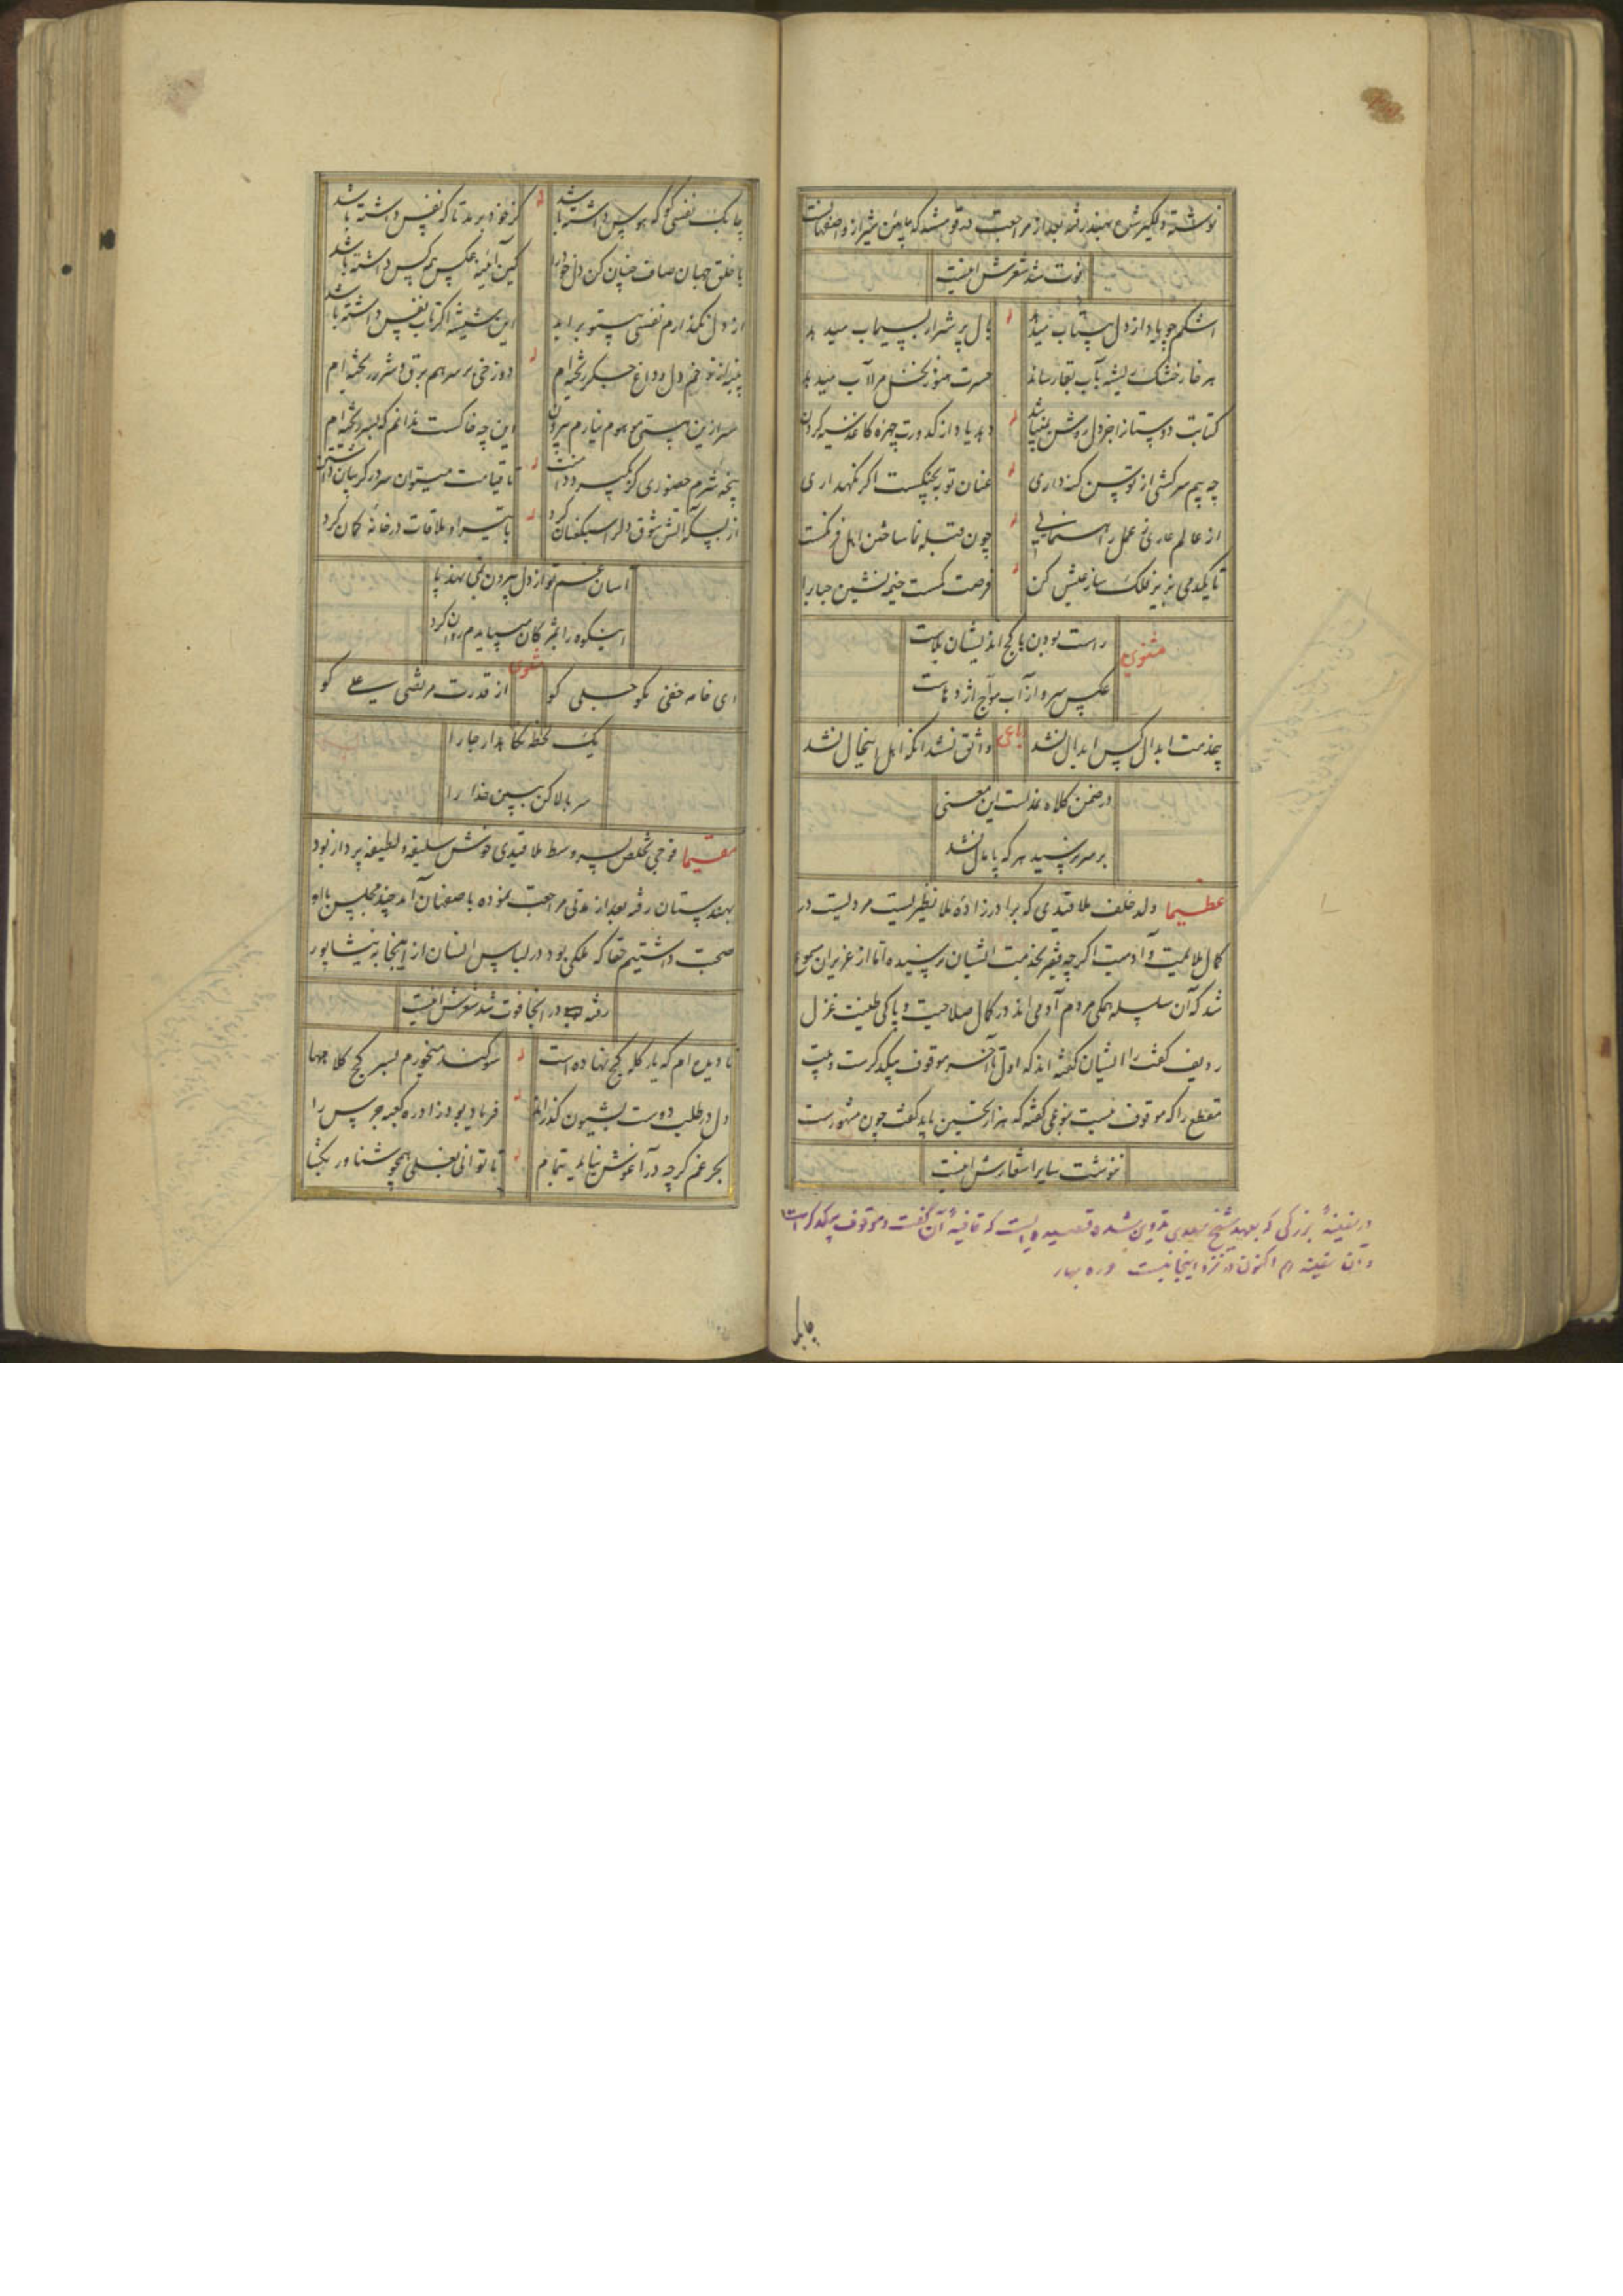 نوشته دلگیر شده بهند رفته بعد از مراجعت در قومشه که مابین شیراز و اصفهانست
فوت شد شعرش اینست
اشکم چو یاد از دل بیتاب میدهد بال پر شرار بسیماب میدهد
هر خار خشک ریشه بآب بقا رساند حسرت هنوز نخل مرا آب میدهد
کتابت دوستانرا جز دل روشن نمیباشد دهد یاد از کدورت چهره کاغذ سیه کردن
چه بیم سرکشی از توسن کنه داری عنان توبه بچنگست اگر نگهداری
از عالم عاری ز عمل راهنمایی چون قبله نما ساختن اهل فرنگست
تا یکدمی بزیر فلک ساز عیش کن فرصت کمست خیمه نشین حباب را
مثنوی
راست بودن با کج اندیشان بلاست
عکس سرو از آب مواج اژدهاست
رباعی
بیخدمت ابدال کس ابدال نشد واثق نشد آنکه اهل اینحال نشد
در ضمن کلاه نمد است این معنی
بر سر نرسید هر که پامال نشد
عظیما ولد خلف ملا قیدی که برادرزاده ملا نظیریست مردیست در
کمال ملایمیت و آدمیت اگرچه فقیر بخدمت ایشان نرسیده اما از عزیزان مسموع
شد که آن سلسله همگی مردم آدمی اند در کمال صلاحیت و پاکی طینت غزل
ردیف گفت را ایشان گفته اند که اول تا آخر موقوف بیکدگرست و بیت
مقطع را که موقوف نیست بنوعی گفته که هزار تحسین باید گفت چون مشهورست
ننوشت سایر اشعارش اینست
در سفینهٔ بزرگی که بعهد شیخ سعدی تدوین شده قصیده ایست که قافیهٔ آن گفت و موقوف بیکدگر است
و آن سفینه هم اکنون در نزد اینجانب است بهار
چابک
چابک نفسی کو که هوس داشته باشد کز خود برمد تا که نفس داشته باشد
با خلق جهان صاف چنان کن دل خود را کین آینه عکس همه کس داشته باشد
از دل نگذارم نفسی بیتو برآید این شیشه اگر تاب نفس داشته باشد
پنبه از زخم دل و داغ جگر ریخته ام دوزخی بر سر هم برق و شرر ریخته ام
سر ازین هستی موهوم نیارم بیرون این چه خاکست ندانم که بسر ریخته ام
پخته شرم حضوری کز سرود تا قیامت میتوان سر در گریبان داشتن
از بسکه آتش شوق دلرا سبکعنان کرد با تیر او ملاقات در خانه کمان کرد
آسان غم تو از دل بیرون نمی نهد پا
این کوه را بمژگان میبایدم روان کرد
مثنوی
ای خامه خفی مگو جلی گو از قدرت مرتضی علی گو
یک لحظه نگاهدار جا را
سر بالا کن ببین خدا را
مقیما فوجی تخلص پسر وسط ملا قیدی خوش سلیقه و لطیفه پرداز بود
بهندستان رفته بعد از مدتی مراجعت نموده باصفهان آمد چند مجلس با او
صحبت داشتیم حقا که ملکی بود در لباس انسان از اینجا به نیشاپور
رفته در آنجا فوت شد شعرش اینست
تا دیده ام که یار کله کج نهاده است سوگند میخورم بسر کج کلاهها
دل در طلب دوست بشیون گذراند فریاد بود زاد ره کعبه جرس را
بحر غم گرچه در آغوش نیاید بتمام تا توانی بغلی همچو شناور بگشا